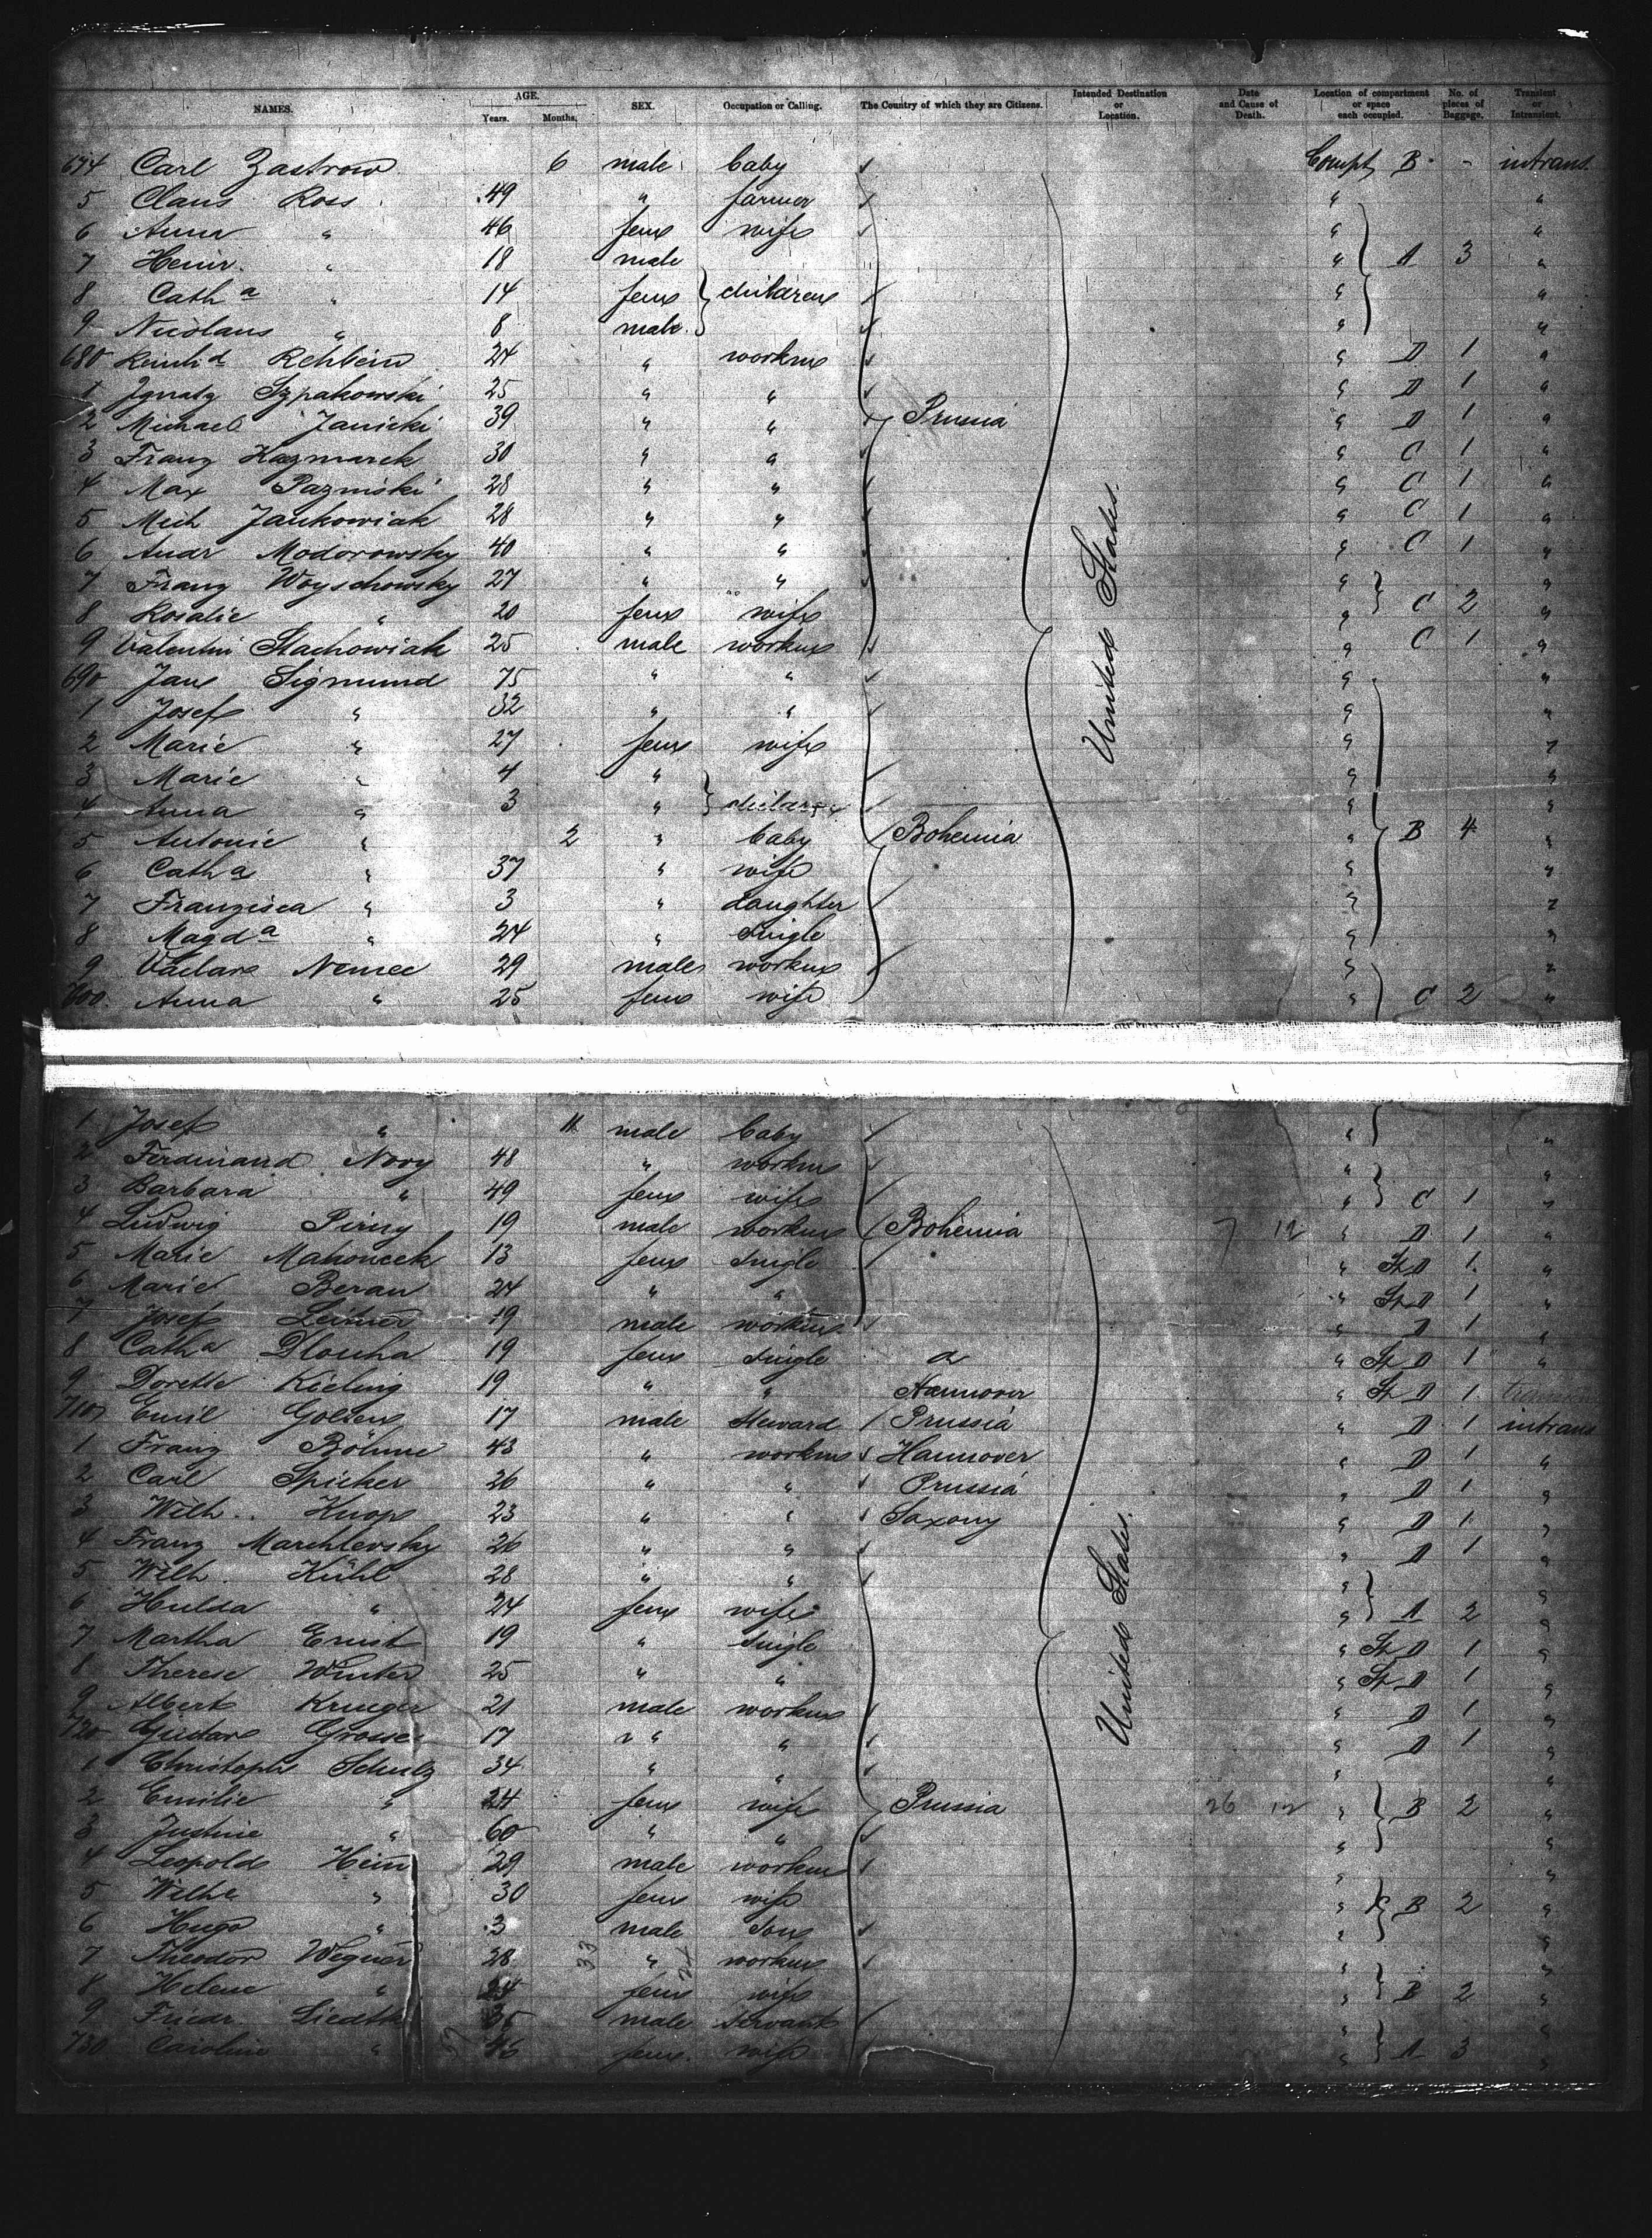 NAMES. AGE. Years. Months. SEX. Occupation or Calling. The Country of which they are Citizens. Intended Destination or Location. Date and Cause of Death. Location of compartment or space each occupied. No. of pieces of Baggage. Transient or Intransient.
674 Carl Zastrow 6 male baby Compt B - intrans.
5 Claus Ross 49 " farmer " "
6 Anna " 46 fem wife " "
7 Heinr. " 18 male " A 3 "
8 Cath a " 14 fem children " "
9 Nicolaus " 8 male " "
680 Reinh d Rehbein 24 " workm " D 1 "
1 Ignatz Szpakowski 25 " " " D 1 "
2 Michael Janicki 39 " " Prussia " D 1 "
3 Franz Kazmarek 30 " " " C 1 "
4 Max Pazinski 28 " " " C 1 "
5 Mich Jankowiak 28 " " " C 1 "
6 Andr Modorowsky 40 " " " C 1 "
7 Franz Woyschowsky 27 " " " "
8 Rosalie " 20 fem wife " C 2 "
9 Valentin Stachowiak 25 male workm " C 1 "
690 Jan Sigmund 75 " " " "
1 Josef " 32 " " United States. " "
2 Marie " 27 fem wife " "
3 Marie " 4 " " "
4 Anna " 3 " children " "
5 Antonie " 2 " baby Bohemia " B 4 "
6 Cath a " 37 " wife " "
7 Franzisca " 3 " daughter " "
8 Magd a " 24 " single " "
9 Vaclav Nemec 29 male workm " "
700. Anna " 25 fem wife " C 2 "
1 Josef " 11 male baby " "
2 Ferdinand Novy 48 " workm " "
3 Barbara " 49 fem wife " C 1 "
4 Ludwig Pirny 19 male workm Bohemia 7 12 " D 1 "
5 Marie Mahoucek 13 fem single " St D 1 "
6 Marie Beran 24 " " " St D 1 "
7 Josef Leitner 19 male workm " D 1 "
8 Cath a Dlouha 19 fem single " " St D 1 "
9 Dorette Kieling 19 " " Hannover " St D 1
710 Emil Golzen 17 male Steward Prussia " D 1 intrans
1 Franz Böhme 43 " workm Hannover " D 1 "
2 Carl Spicher 26 " " Prussia " D 1 "
3 Wilh. Knop 23 " " Saxony " D 1 "
4 Franz Marchlevsky 26 " " " D 1 "
5 Wilh. Kühl 28 " " " "
6 Hulda " 24 fem wife " A 2 "
7 Martha Ernst 19 " single United States. " St D 1 "
8 Therese Winter 25 " " " St D 1 "
9 Albert Krueger 21 male workm " D 1 "
720 Gustav Grosse 17 " " " D 1 "
1 Christoph Schulz 34 " " " "
2 Emilie " 24 fem wife Prussia 26 12 " B 2 "
3 Justine " 60 " " " "
4 Leopold Hein 29 male workm " "
5 Wilh e " 30 fem wife " B 2 "
6 Hugo " 3 male son " "
7 Theodor Wegner 28 33 " workm " "
8 Helene " 24 fem wife " B 2 "
9 Friedr. Liedtke 35 male servant " "
730 Caroline " 46 fem. wife " A 3 "